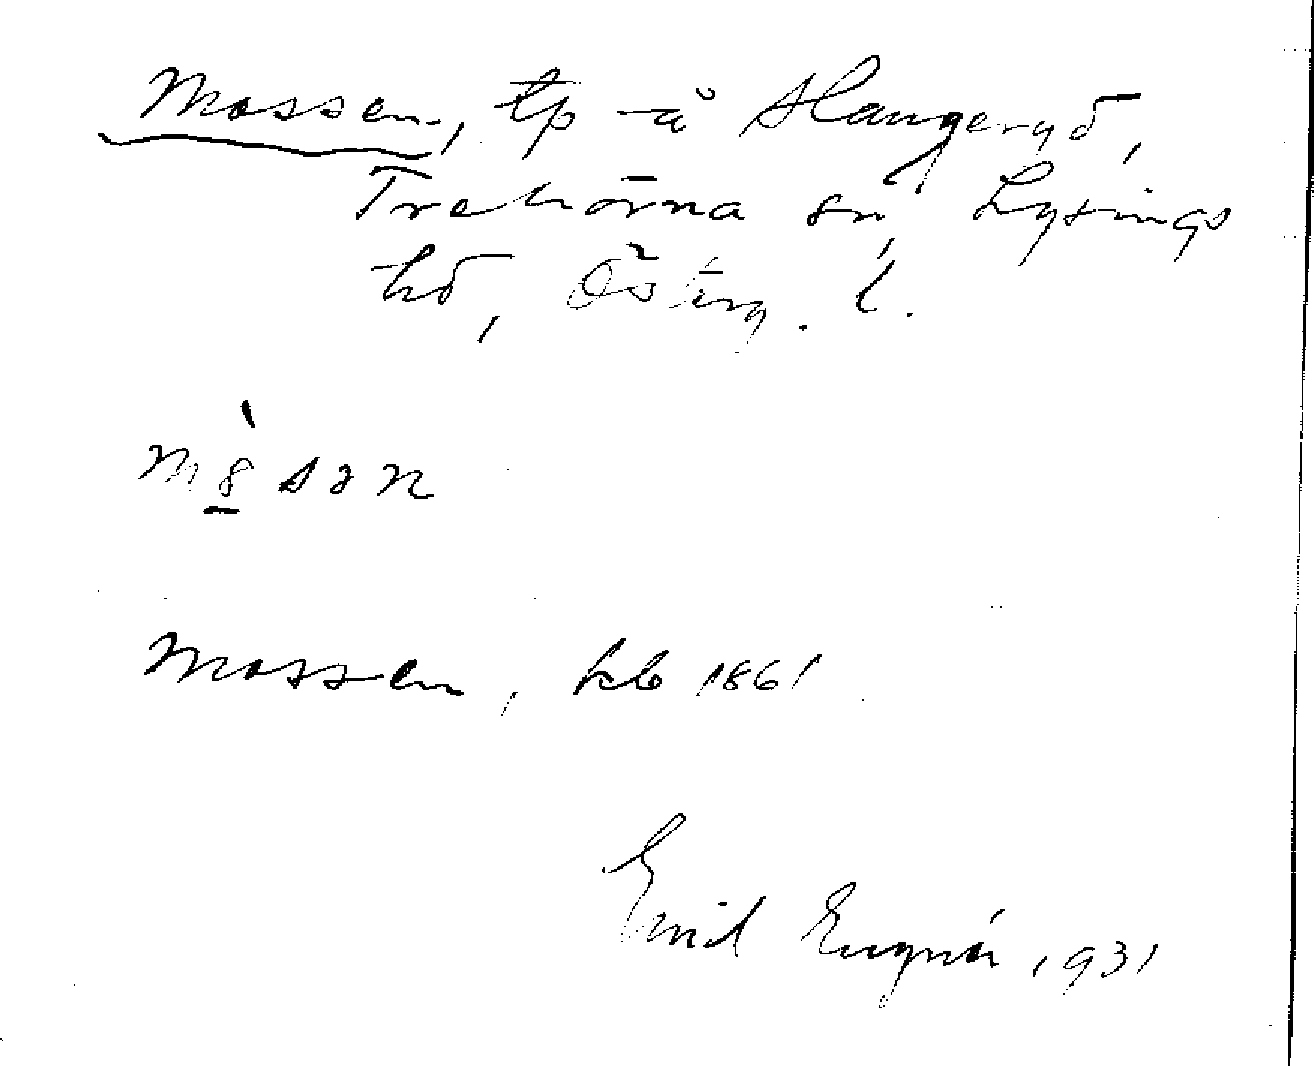 Mossen, tp å Slangeryd,
Trehörna sn, Lysings
hd, Österg. l.
Mossen, kb 1861
Emil Eugnér 1931